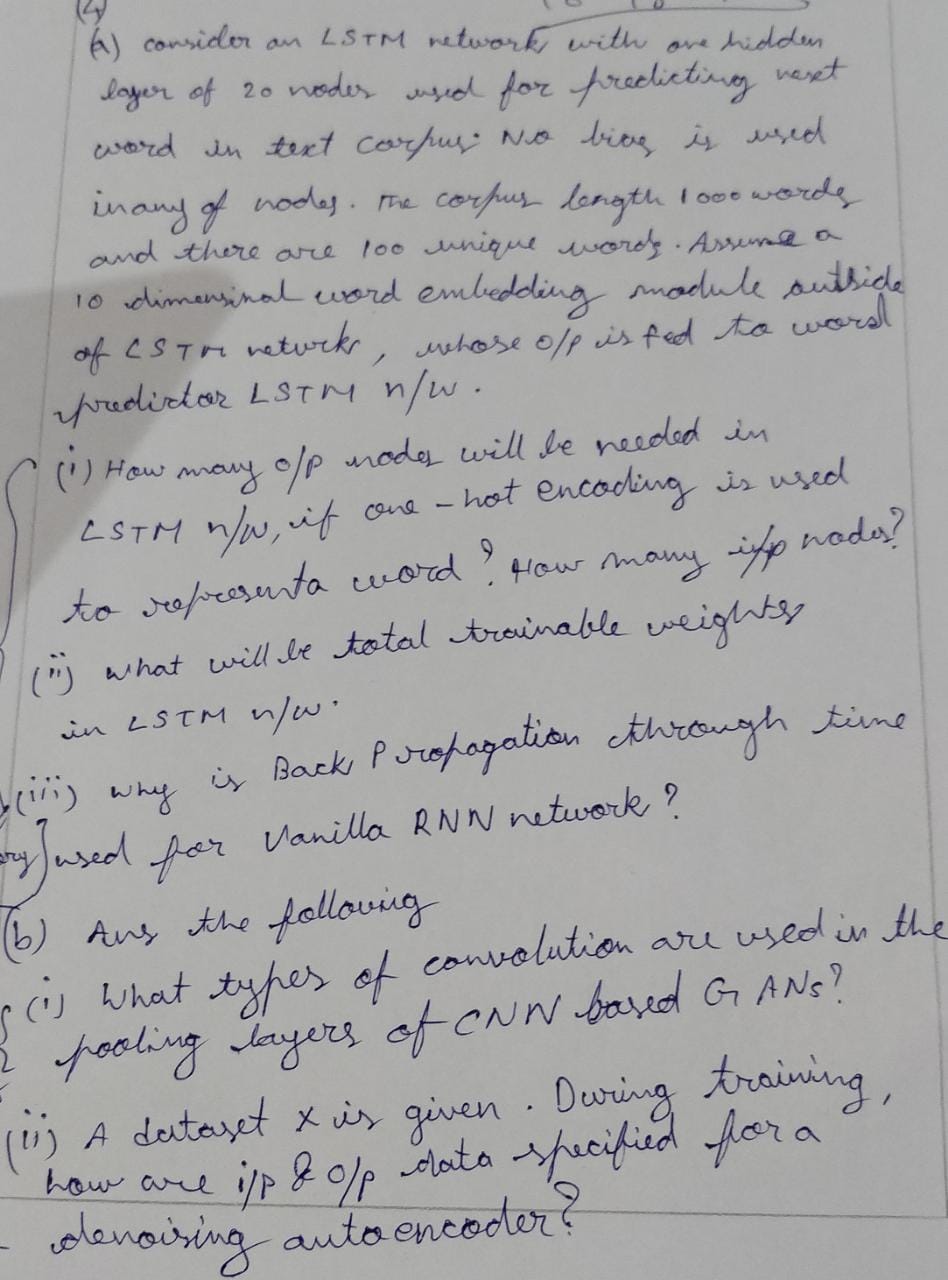 (4)
(a) consider an LSTM network with one hidden
layer of 20 nodes used for predicting next
word in text corpus. No bias is used
in any of nodes. The corpus length 1000 words
and there are 100 unique words. Assume a
10 dimensinal word embedding module outside
of LSTM netwrk, whose o/p is fed to word
predictor LSTM n/w.
(i) How many o/p nodes will be needed in
LSTM n/w, if one-hot encoding is used
to represent a word? How many i/p nodes?
(ii) what will be total trainable weights
in LSTM n/w.
(iii) why is Back Propagation through time
used for Vanilla RNN network?
(b) Ans the following
(i) What types of convolution are used in the
pooling layers of CNN based GANs?
(ii) A dataset X is given. During training,
how are i/p & o/p data specified for a
denoising autoencoder?